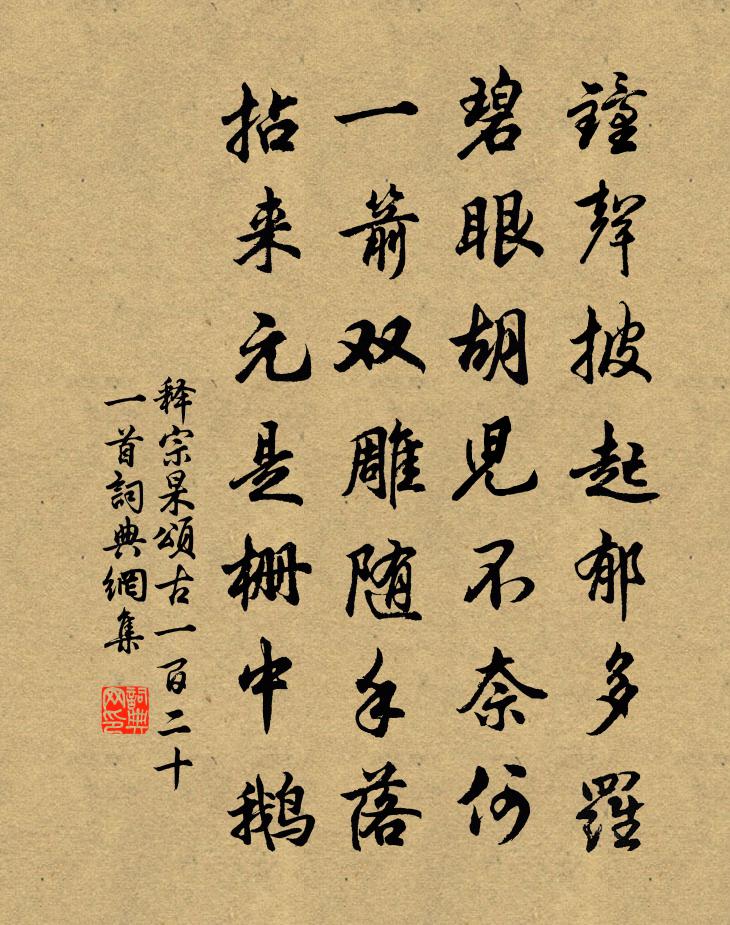 鐘聲披起郁多羅
碧眼胡児不奈何
一箭双雕随手落
拈来元是栅中鹅
释宗杲頌古一百二十
一首詞典網集
詞典
网印